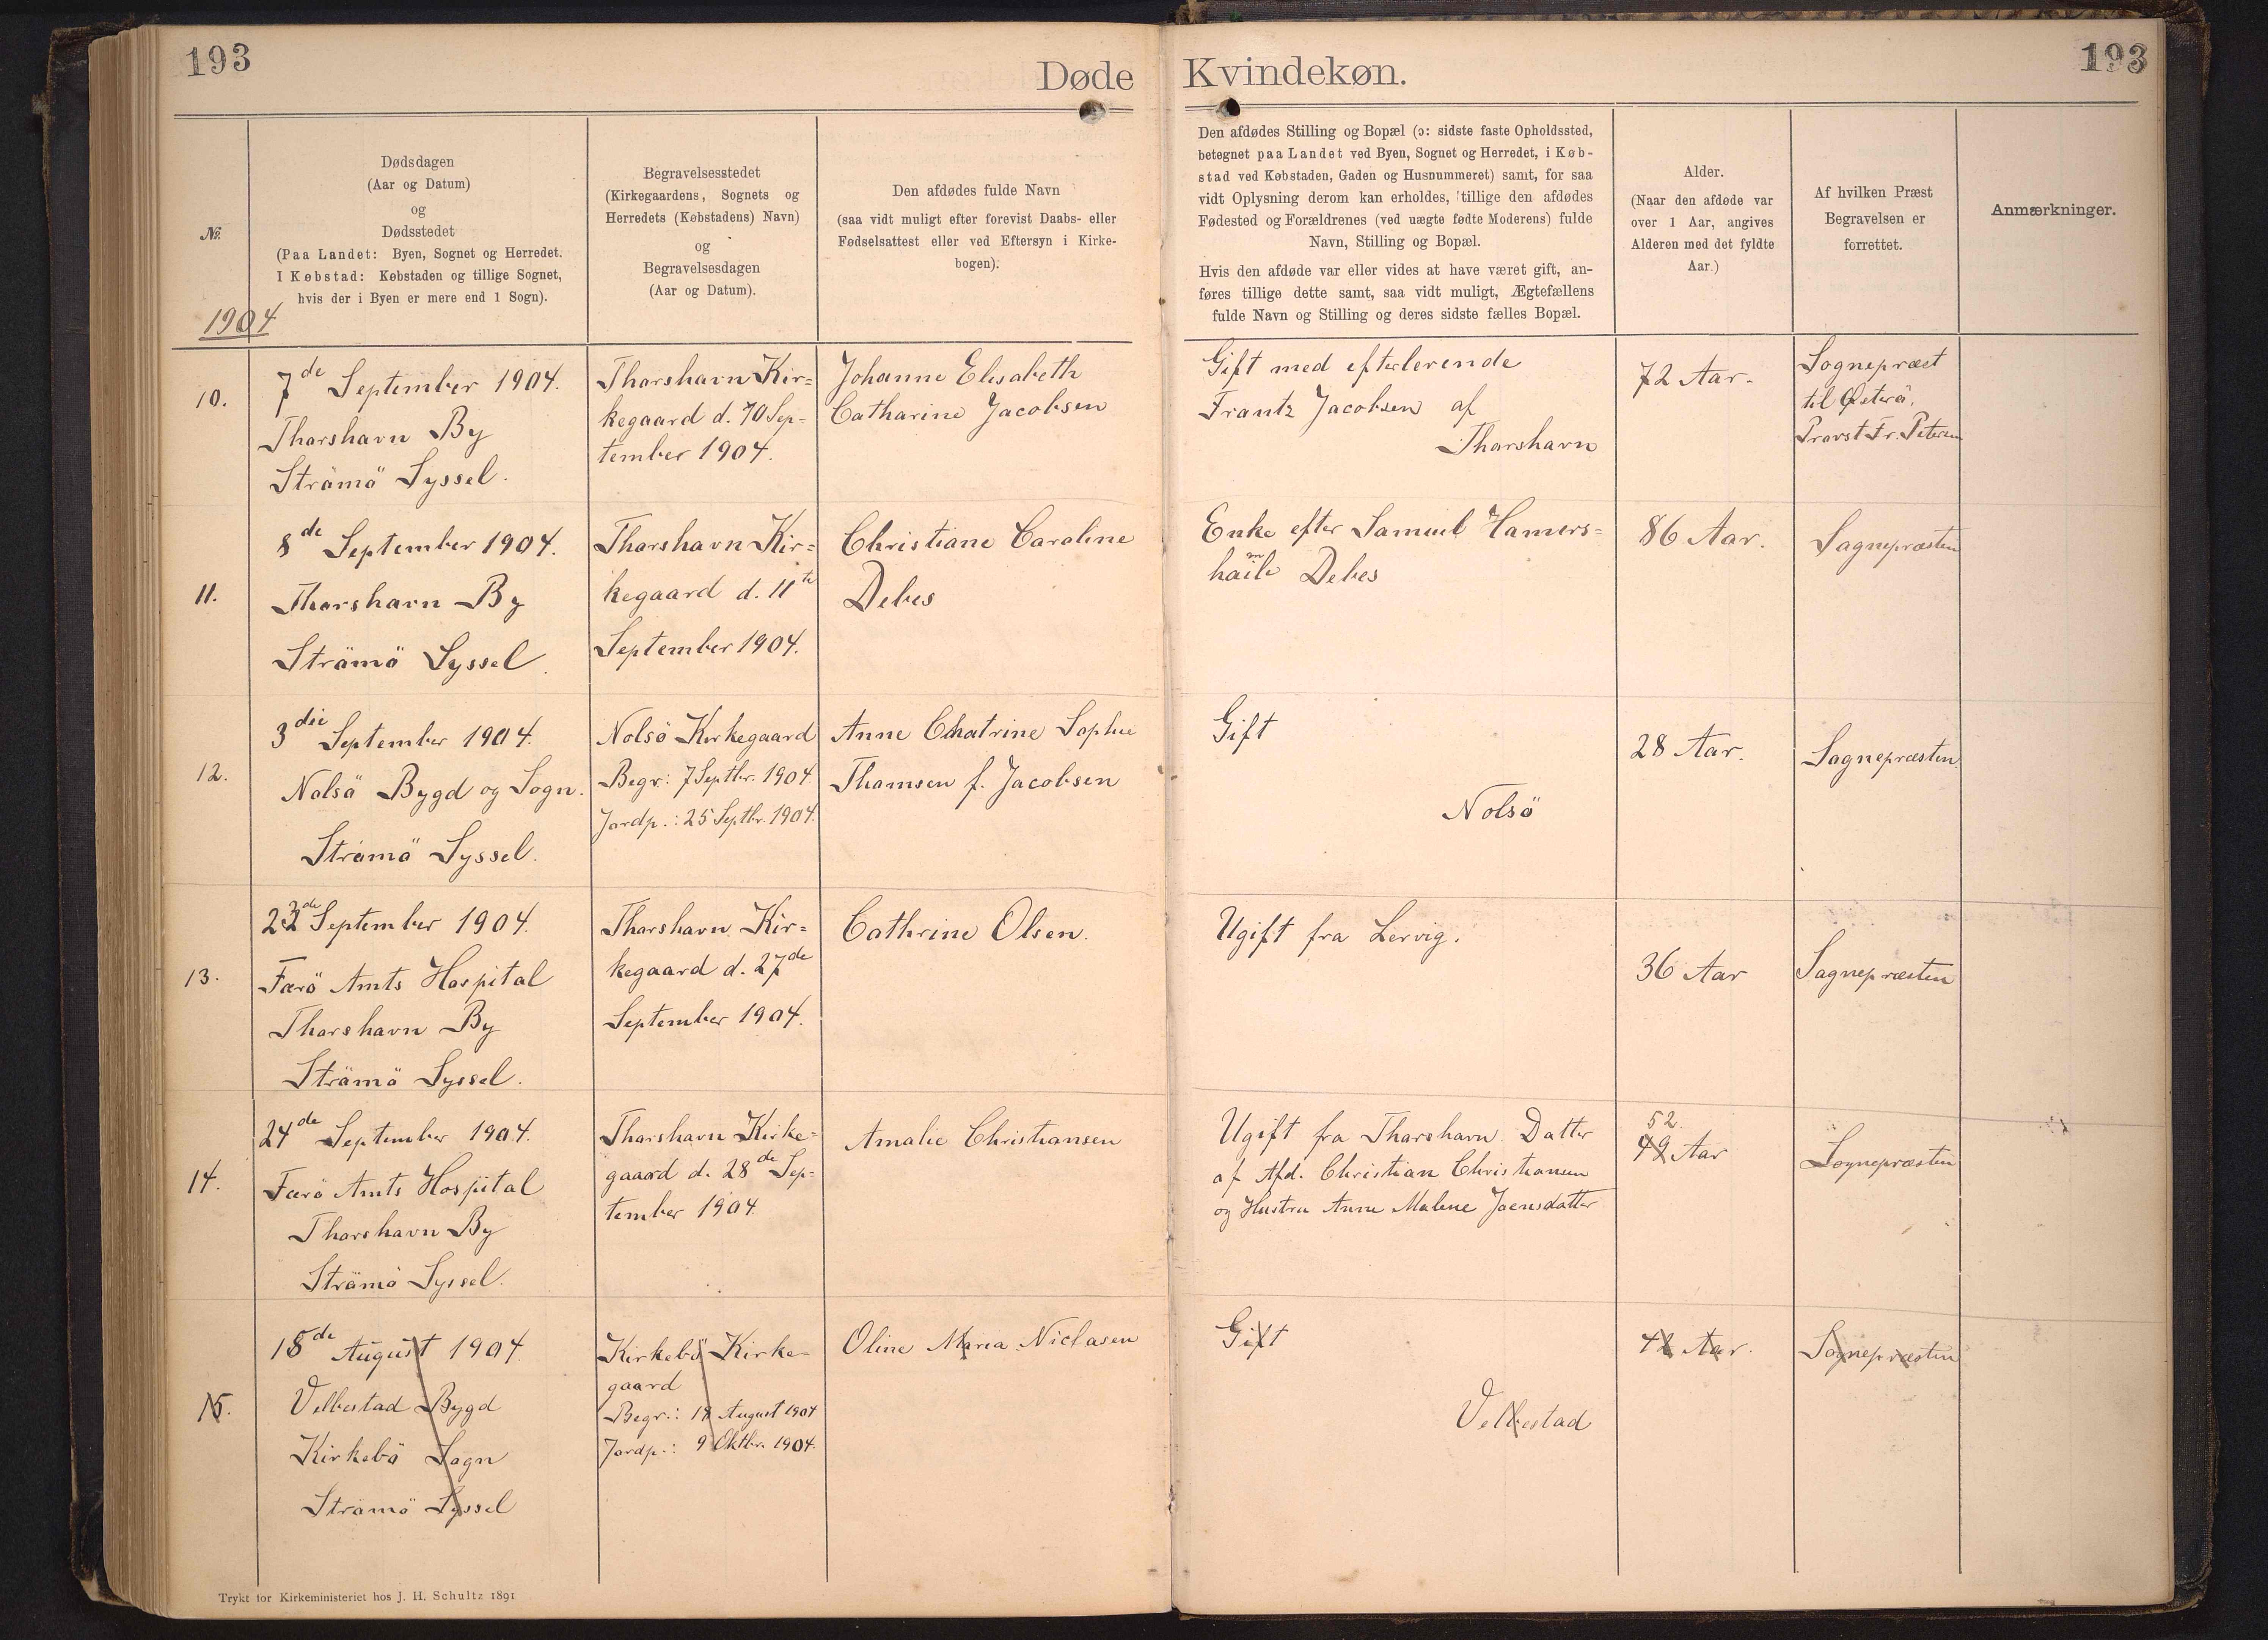 193
193
Døde Kvindekøn.
№
1904
Dødsdagen
(Aar og Datum)
og
Dødsstedet
(Paa Landet: Byen, Sognet og Herredet.
I Købstad: Købstaden og tillige Sognet,
hvis der i Byen er mere end 1 Sogn).
Begravelsesstedet
(Kirkegaardens, Sognets og
Herredets (Købstadens) Navn)
og
Begravelsesdagen
(Aar og Datum).
Den afdødes fulde Navn
(saa vidt muligt efter forevist Daabs- eller
Fødselsattest eller ved Eftersyn i Kirke-
bogen).
Den afdødes Stilling og Bopæl (ɔ: sidste faste Opholdssted,
betegnet paa Landet ved Byen, Sognet og Herredet, i Køb-
stad ved Købstaden, Gaden og Husnummeret) samt, for saa
vidt Oplysning derom kan erholdes, tillige den afdødes
Fødested og Forældrenes (ved uægte fødte Moderens) fulde
Navn, Stilling og Bopæl.
Hvis den afdøde var eller vides at have været gift, an-
føres tillige dette samt, saa vidt muligt, Ægtefællens
fulde Navn og Stilling og deres sidste fælles Bopæl.
Alder.
(Naar den afdøde var
over 1 Aar, angives
Alderen med det fyldte
Aar.)
Af hvilken Præst
Begravelsen er
forrettet.
Anmærkninger.
10.
7de September 1904.
Thorshavn By
Strömö Syssel.
Thorshavn Kir=
kegaard d. 10 Sep-
tember 1904.
Johanne Elisabeth
Catharine Jacobsen
Gift med efterlevende
Frantz Jacobsen af
Thorshavn
72 Aar.
Sognepræst
til Østerö,
Provst Fr. Petersen
11.
8de September 1904.
Thorshavn By
Strömö Syssel.
Thorshavn Kir=
kegaard d. 11te
September 1904.
Christiane Caroline
Debes
Enke efter Samuel Hamers=
haimb Debes
86 Aar.
Sognepræsten
12.
3die September 1904.
Nolsö Bygd og Sogn.
Strömö Syssel.
Nolsö Kirkegaard
Begr: 7 Septbr. 1904.
Jordp.: 25 Septbr. 1904.
Anne Chatrine Sophie
Thomsen f. Jacobsen
Gift
Nolsö
28 Aar.
Sognepræsten
13.
23de September 1904.
Færö Amts Hospital
Thorshavn By
Strömö Syssel.
Thorshavn Kir=
kegaard d. 27de
September 1904.
Cathrine Olsen.
Ugift fra Lervig.
36 Aar
Sognepræsten
14.
24de September 1904.
Færö Amts Hospital
Thorshavn By
Strömö Syssel.
Thorshavn Kirke=
gaard d. 28de Sep=
tember 1904
Amalie Christiansen
Ugift fra Thorshavn. Datter
af Afd. Christian Christiansen
og Hustru Anne Malene Joensdatter
52.
49 Aar
Sognepræsten
15.
18de August 1904
Velbestad Bygd
Kirkebö Sogn
Strömö Syssel
Kirkebö Kirke-
gaard
Begr.: 19 August 1904
Jordp.: 9 Oktbr. 1904.
Oline Maria Niclasen
Gift
Velbestad
42 Aar.
Sognepræsten
Trykt for Kirkeministeriet hos J. H. Schultz 1891